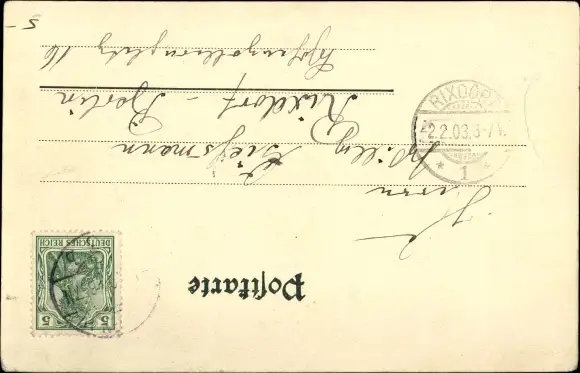 Postkarte
Herrn
Willy
Rixdorf – Berlin
Hohenzollernplatz 16
5
RIXDORF
2.2.03.
* 1 *
DEUTSCHES REICH
5 5